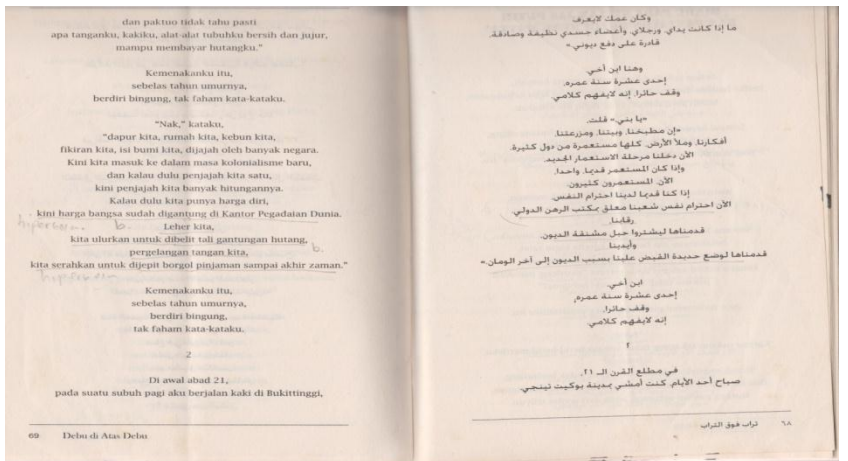 dan paktuo tidak tahu pasti
apa tanganku, kakiku, alat-alat tubuhku bersih dan jujur,
mampu membayar hutangku."
Kemenakanku itu,
sebelas tahun umurnya,
berdiri bingung, tak faham kata-kataku.
"Nak," kataku,
"dapur kita, rumah kita, kebun kita,
fikiran kita, isi bumi kita, dijajah oleh banyak negara.
Kini kita masuk ke dalam masa kolonialisme baru,
dan kalau dulu penjajah kita satu,
kini penjajah kita banyak hitungannya.
Kalau dulu kita punya harga diri,
kini harga bangsa sudah digantung di Kantor Pegadaian Dunia.
b.
Leher kita,
kita ulurkan untuk dibelit tali gantungan hutang,
b.
pergelangan tangan kita,
kita serahkan untuk dijepit borgol pinjaman sampai akhir zaman."
Kemenakanku itu,
sebelas tahun umurnya,
berdiri bingung,
tak faham kata-kataku.
2
Di awal abad 21,
pada suatu subuh pagi aku berjalan kaki di Bukittinggi,
69 Debu di Atas Debu
وكان عمك لايعرف
ما إذا كانت يداي، ورجلاي، وأعضاء جسدي نظيفة وصادقة،
قادرة على دفع ديوني.»
وهنا ابن أخي
إحدى عشرة سنة عمره،
وقف حائرا، إنه لايفهم كلامي.
«يا بني،» قلت،
«إن مطبخنا، وبيتنا، ومزرعتنا،
أفكارنا، وملأ الأرض، كلها مستعمرة من دول كثيرة.
الآن دخلنا مرحلة الاستعمار الجديد،
وإذا كان المستعمر قديما، واحدا،
الآن، المستعمرون كثيرون.
إذا كنا قديما لدينا احترام النفس،
الآن احترام نفس شعبنا معلق بمكتب الرهن الدولي.
رقابنا،
قدمناها ليشتروا حبل مشنقة الديون،
وأيدينا
قدمناها لوضع حديدة القبض علينا بسبب الديون إلى آخر الومان.»
ابن أخي،
إحدى عشرة سنة عمره،
وقف حائرا،
إنه لايفهم كلامي.
٢
في مطلع القرن الـ ٢١،
صباح أحد الأيام، كنت أمشي بمدينة بوكيت تينجي،
٦٨ تراب فوق التراب